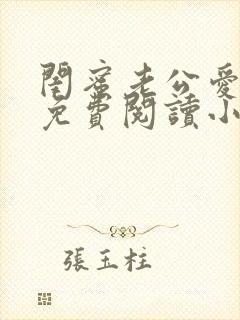 閨蜜老公愛
免費閱讀小
張玉柱